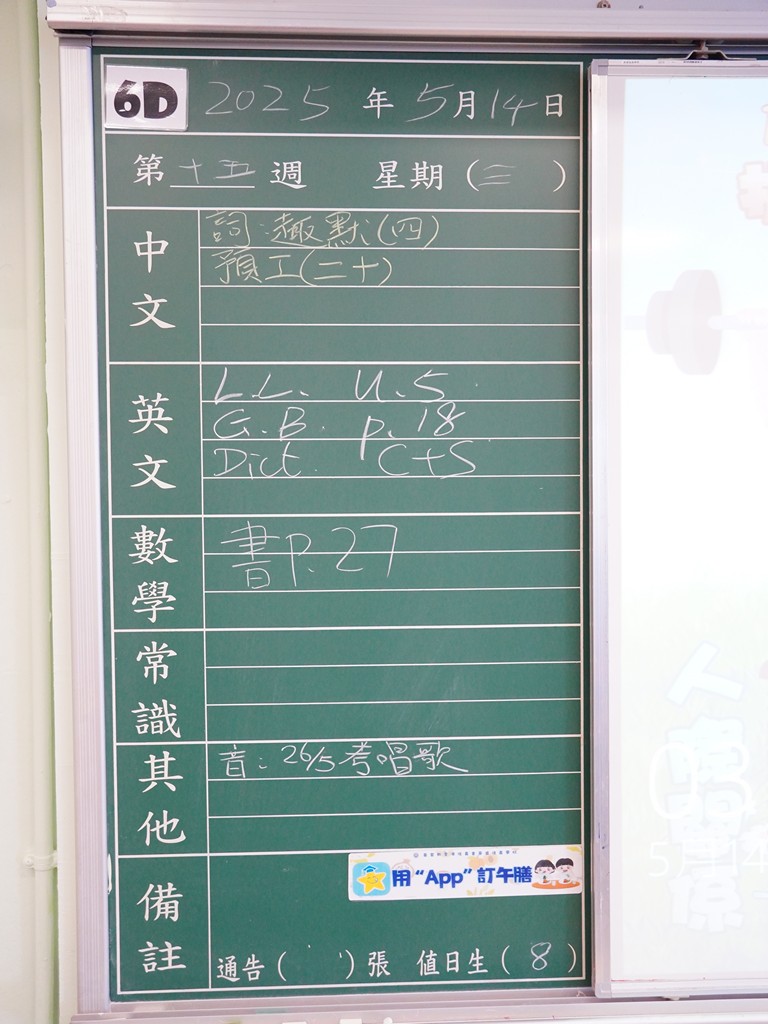 6D 2025 年 5月14日
第 十五 週 星期(三)
中文
詞:趣默(四)
預工(二十)
英文
L.L. U.5
G.B. p.18
Dict. C+S
數學
書P.27
常識
其他
音:26/5考唱歌
備註
用“App”訂午膳
通告( )張 值日生(8)